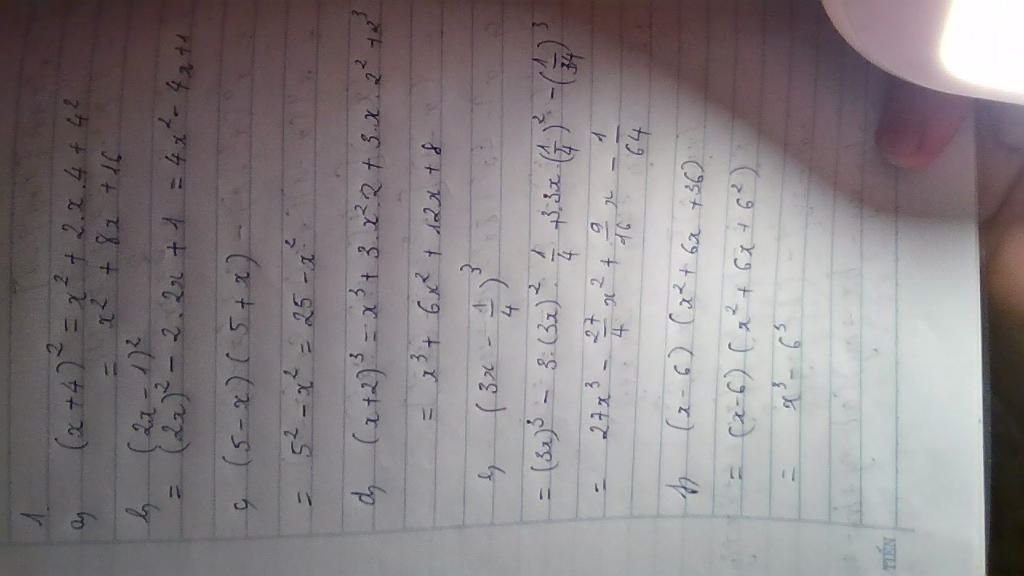 1
a, (x+4)² = x² + 2.x.4 + 4²
= x² + 8x + 16
b, (2x - 1)²
= (2x)² - 2.2x + 1 = 4x² - 4x + 1
c, (5-x)(5+x)
= 5² - x² = 25 - x²
d, (x+2)³ = x³ + 3.x².2 + 3.x.2² + 2³
= x³ + 6x² + 12x + 8
e, (3x - 1/4)³
= (3x)³ - 3.(3x)². 1/4 + 3.3x.(1/4)² - (1/34)³
= 27x³ - 27/4 x² + 9/16 x - 1/64
f, (x-6)(x² + 6x + 36)
= (x-6)(x² + 6x + 6²)
= x³ - 6³
TIẾN